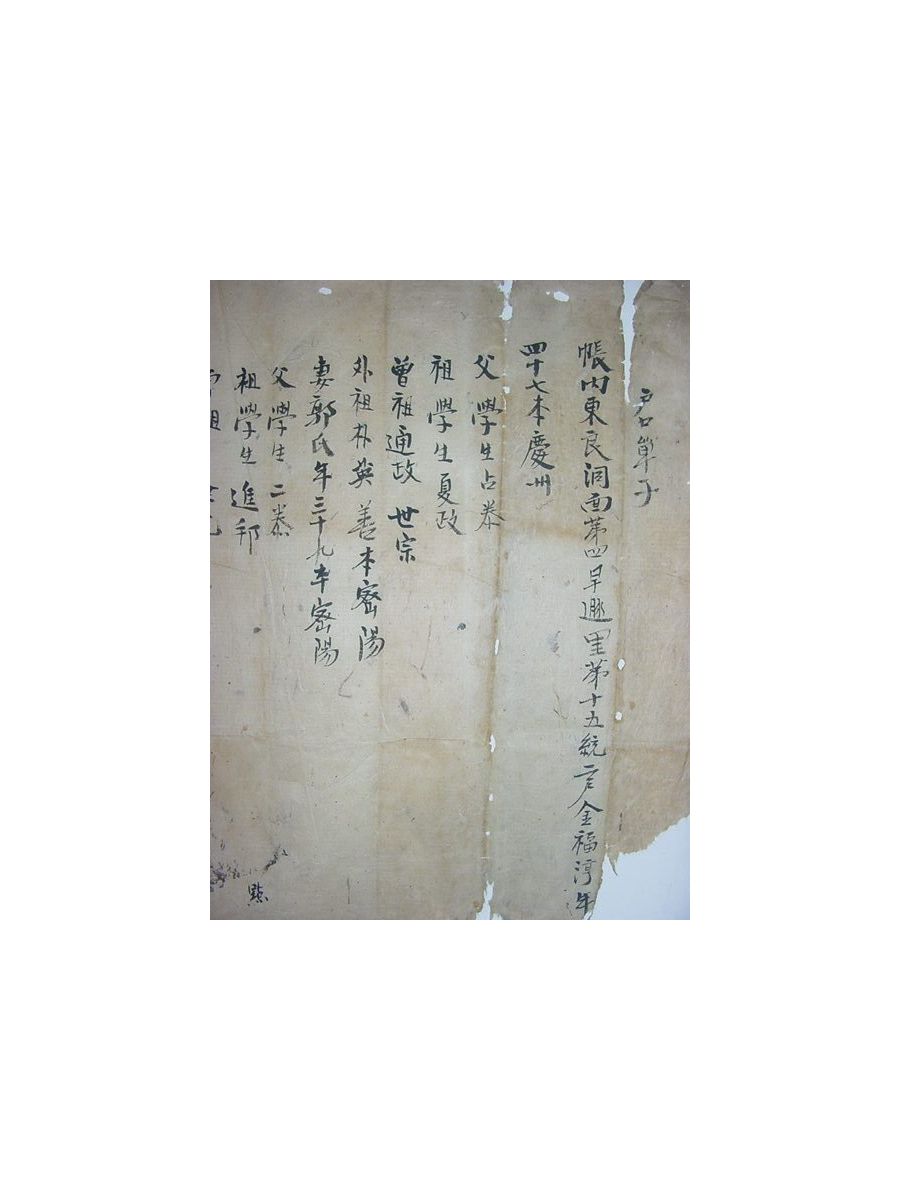 戶口單子
帳內東良洞面第四旱遯里第十五統戶金福淳年
四十七本慶州
父學生占泰
祖學生夏政
曾祖通政世宗
外祖朴英善本密陽
妻郭氏年三十九本密陽
父學生二泰
祖學生進邦
祖
點